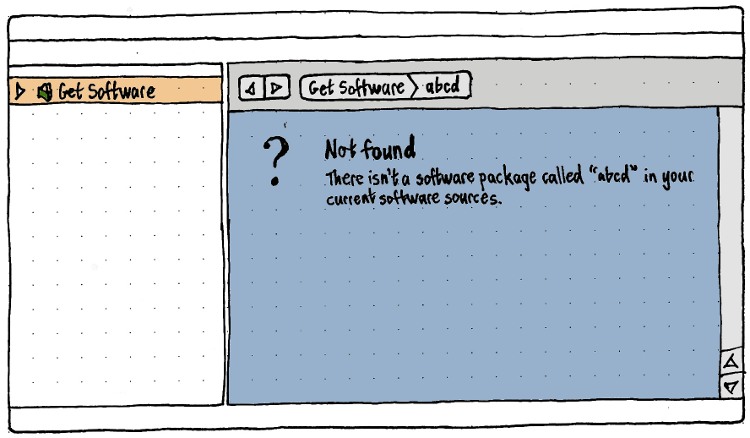 Get Software
Get Software abcd
?
Not found
There isn't a software package called "abcd" in your
current software sources.